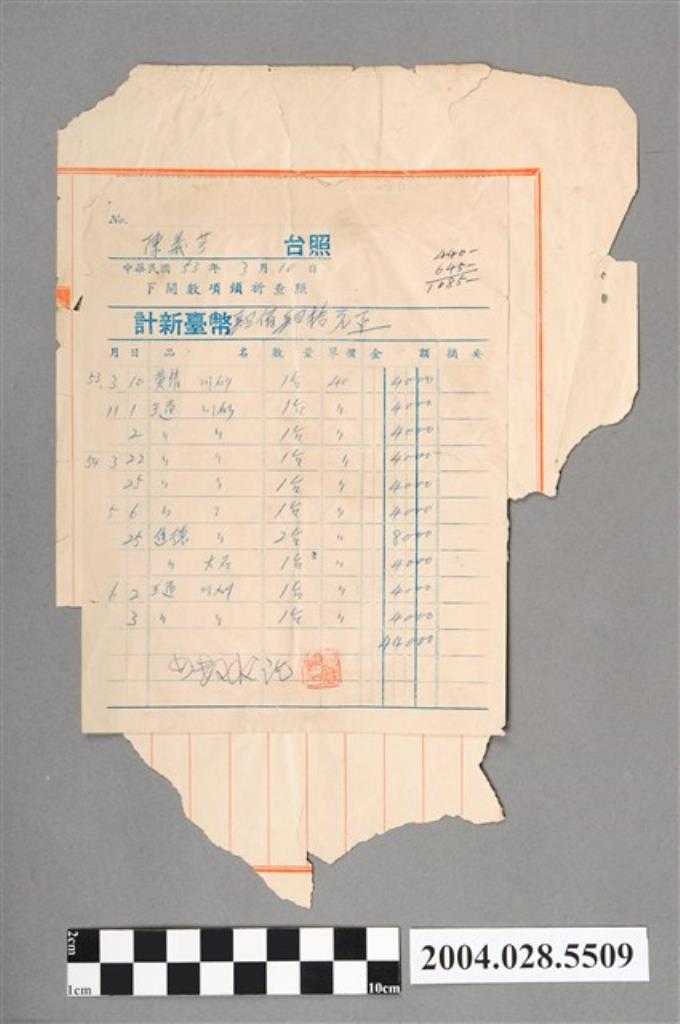 No.
陳義芳 台照
440-
645-
1085-
中華民國 53 年 3 月 10 日
下開數項請祈查照
計新臺幣肆佰肆拾元正
月 日 品 名 數 量 單 價 金 額 摘 要
53. 3 10 川砂 1台 40 4000
11 1 王通 川砂 1台 〃 4000
2 〃 〃 1台 〃 4000
54 3 22 〃 〃 1台 〃 4000
25 〃 〃 1台 〃 4000
5 6 〃 〃 1台 〃 4000
25 進德 〃 2台 〃 8000
〃 大石 1台 〃 4000
6 2 王通 川砂 1台 〃 4000
3 〃 〃 1台 〃 4000
44000
2cm
1cm
10cm
2004.028.5509